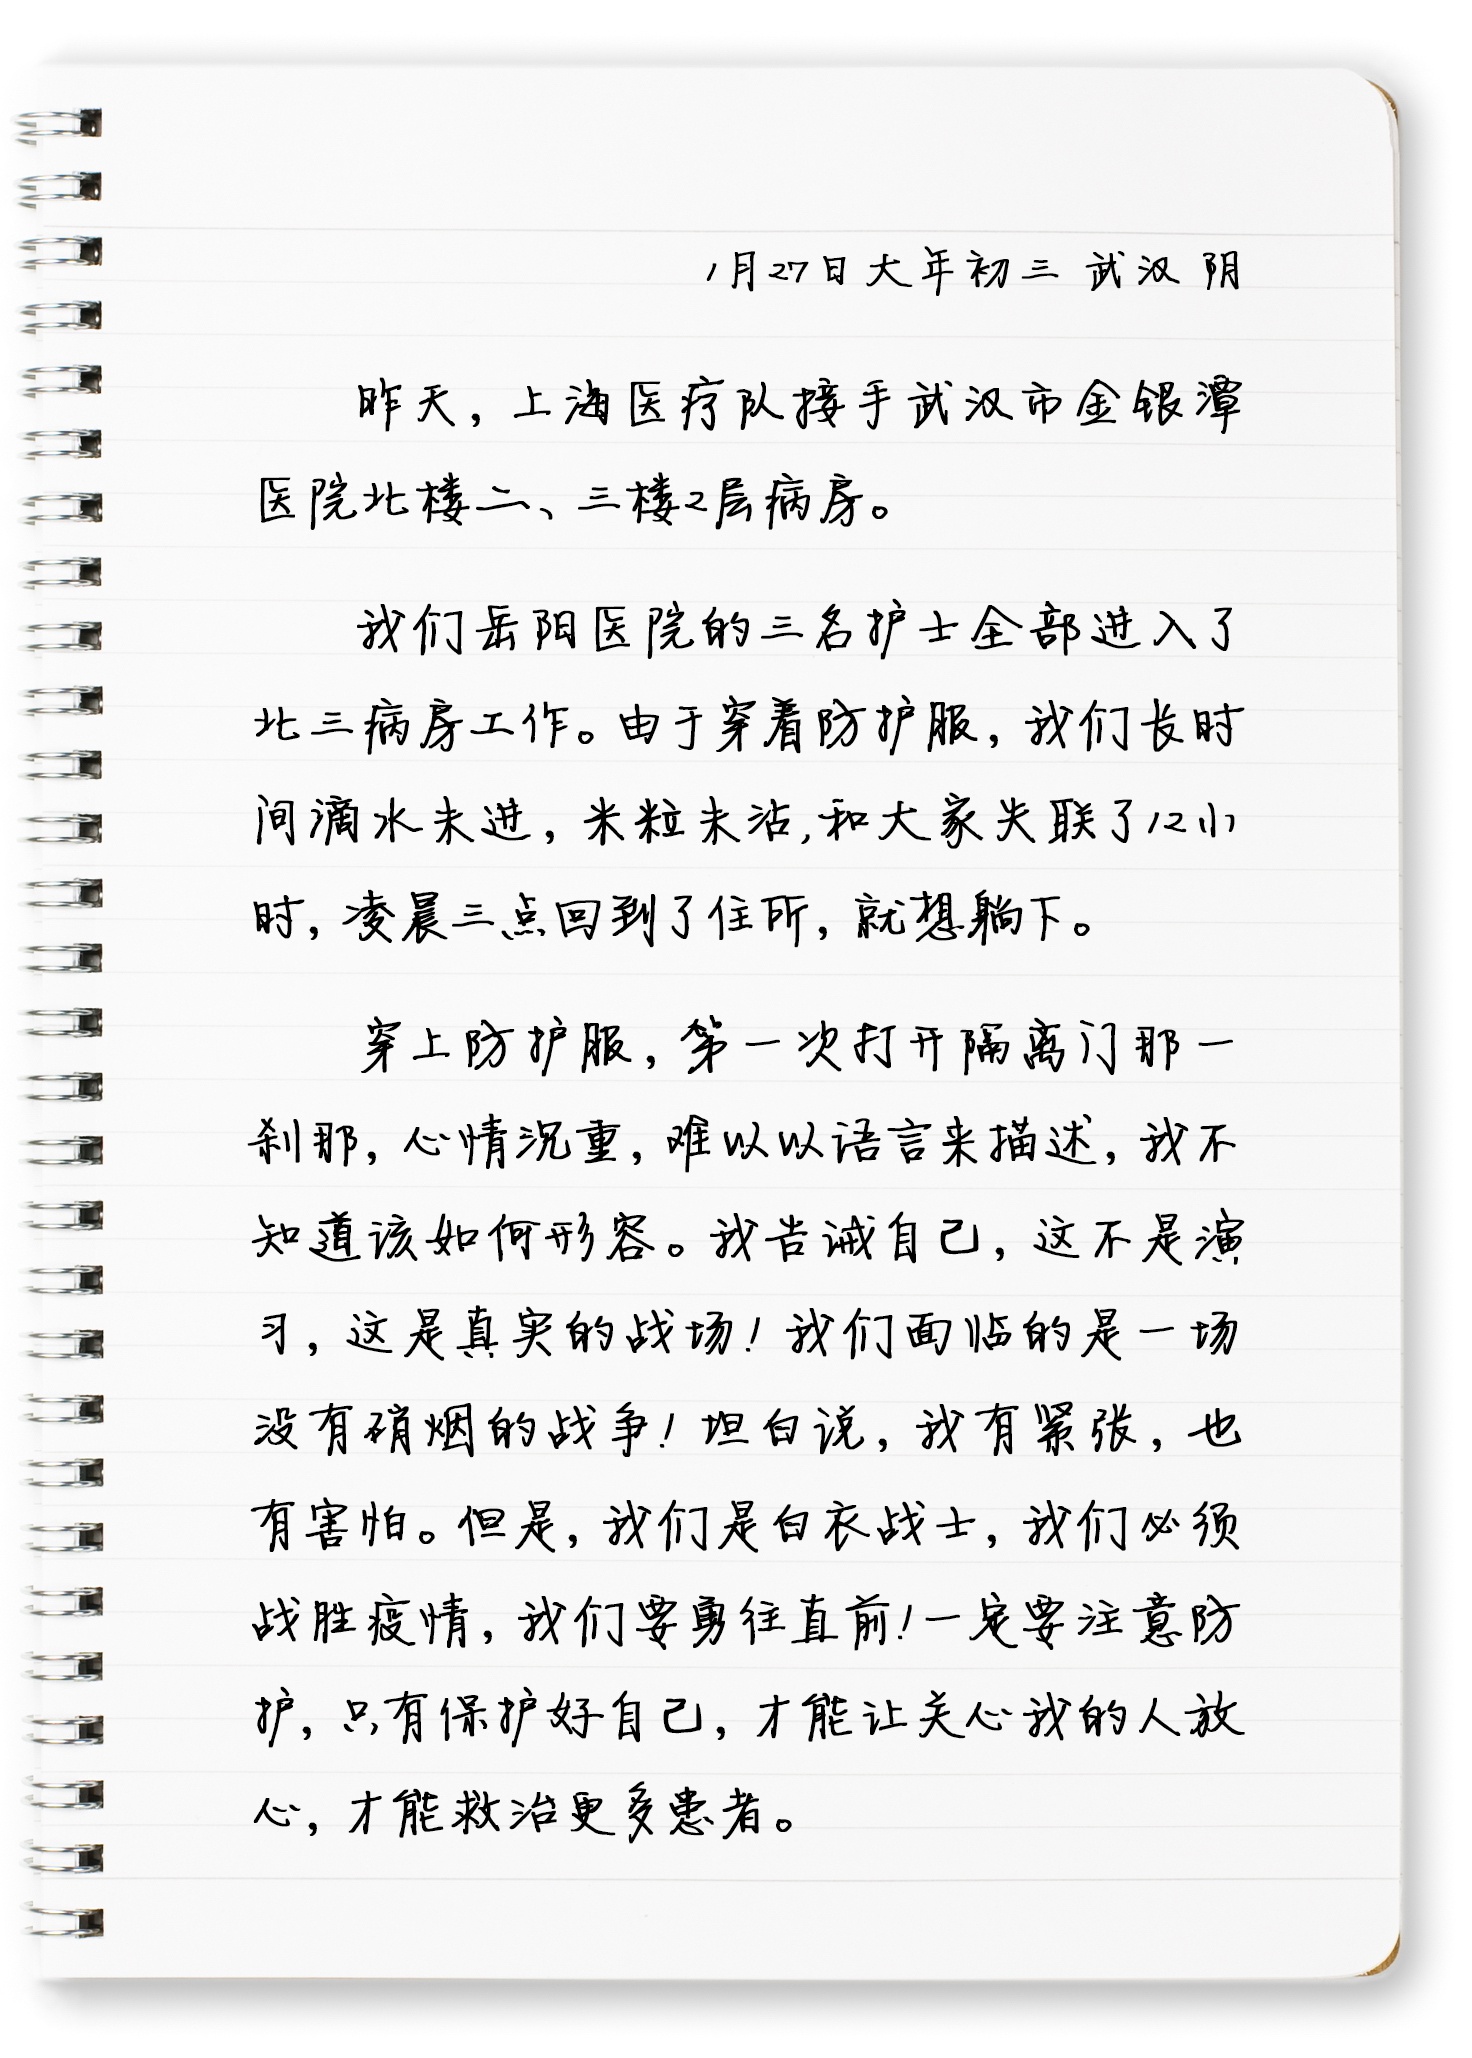 1月27日大年初三 武汉 阴
昨天，上海医疗队接手武汉市金银潭
医院北楼二、三楼2层病房。
我们岳阳医院的三名护士全部进入了
北三病房工作。由于穿着防护服，我们长时
间滴水未进，米粒未沾,和大家失联了12小
时，凌晨三点回到了住所，就想躺下。
穿上防护服，第一次打开隔离门那一
刹那，心情沉重，难以以语言来描述，我不
知道该如何形容。我告诫自己，这不是演
习，这是真实的战场！我们面临的是一场
没有硝烟的战争！坦白说，我有紧张，也
有害怕。但是，我们是白衣战士，我们必须
战胜疫情，我们要勇往直前！一定要注意防
护，只有保护好自己，才能让关心我的人放
心，才能救治更多患者。